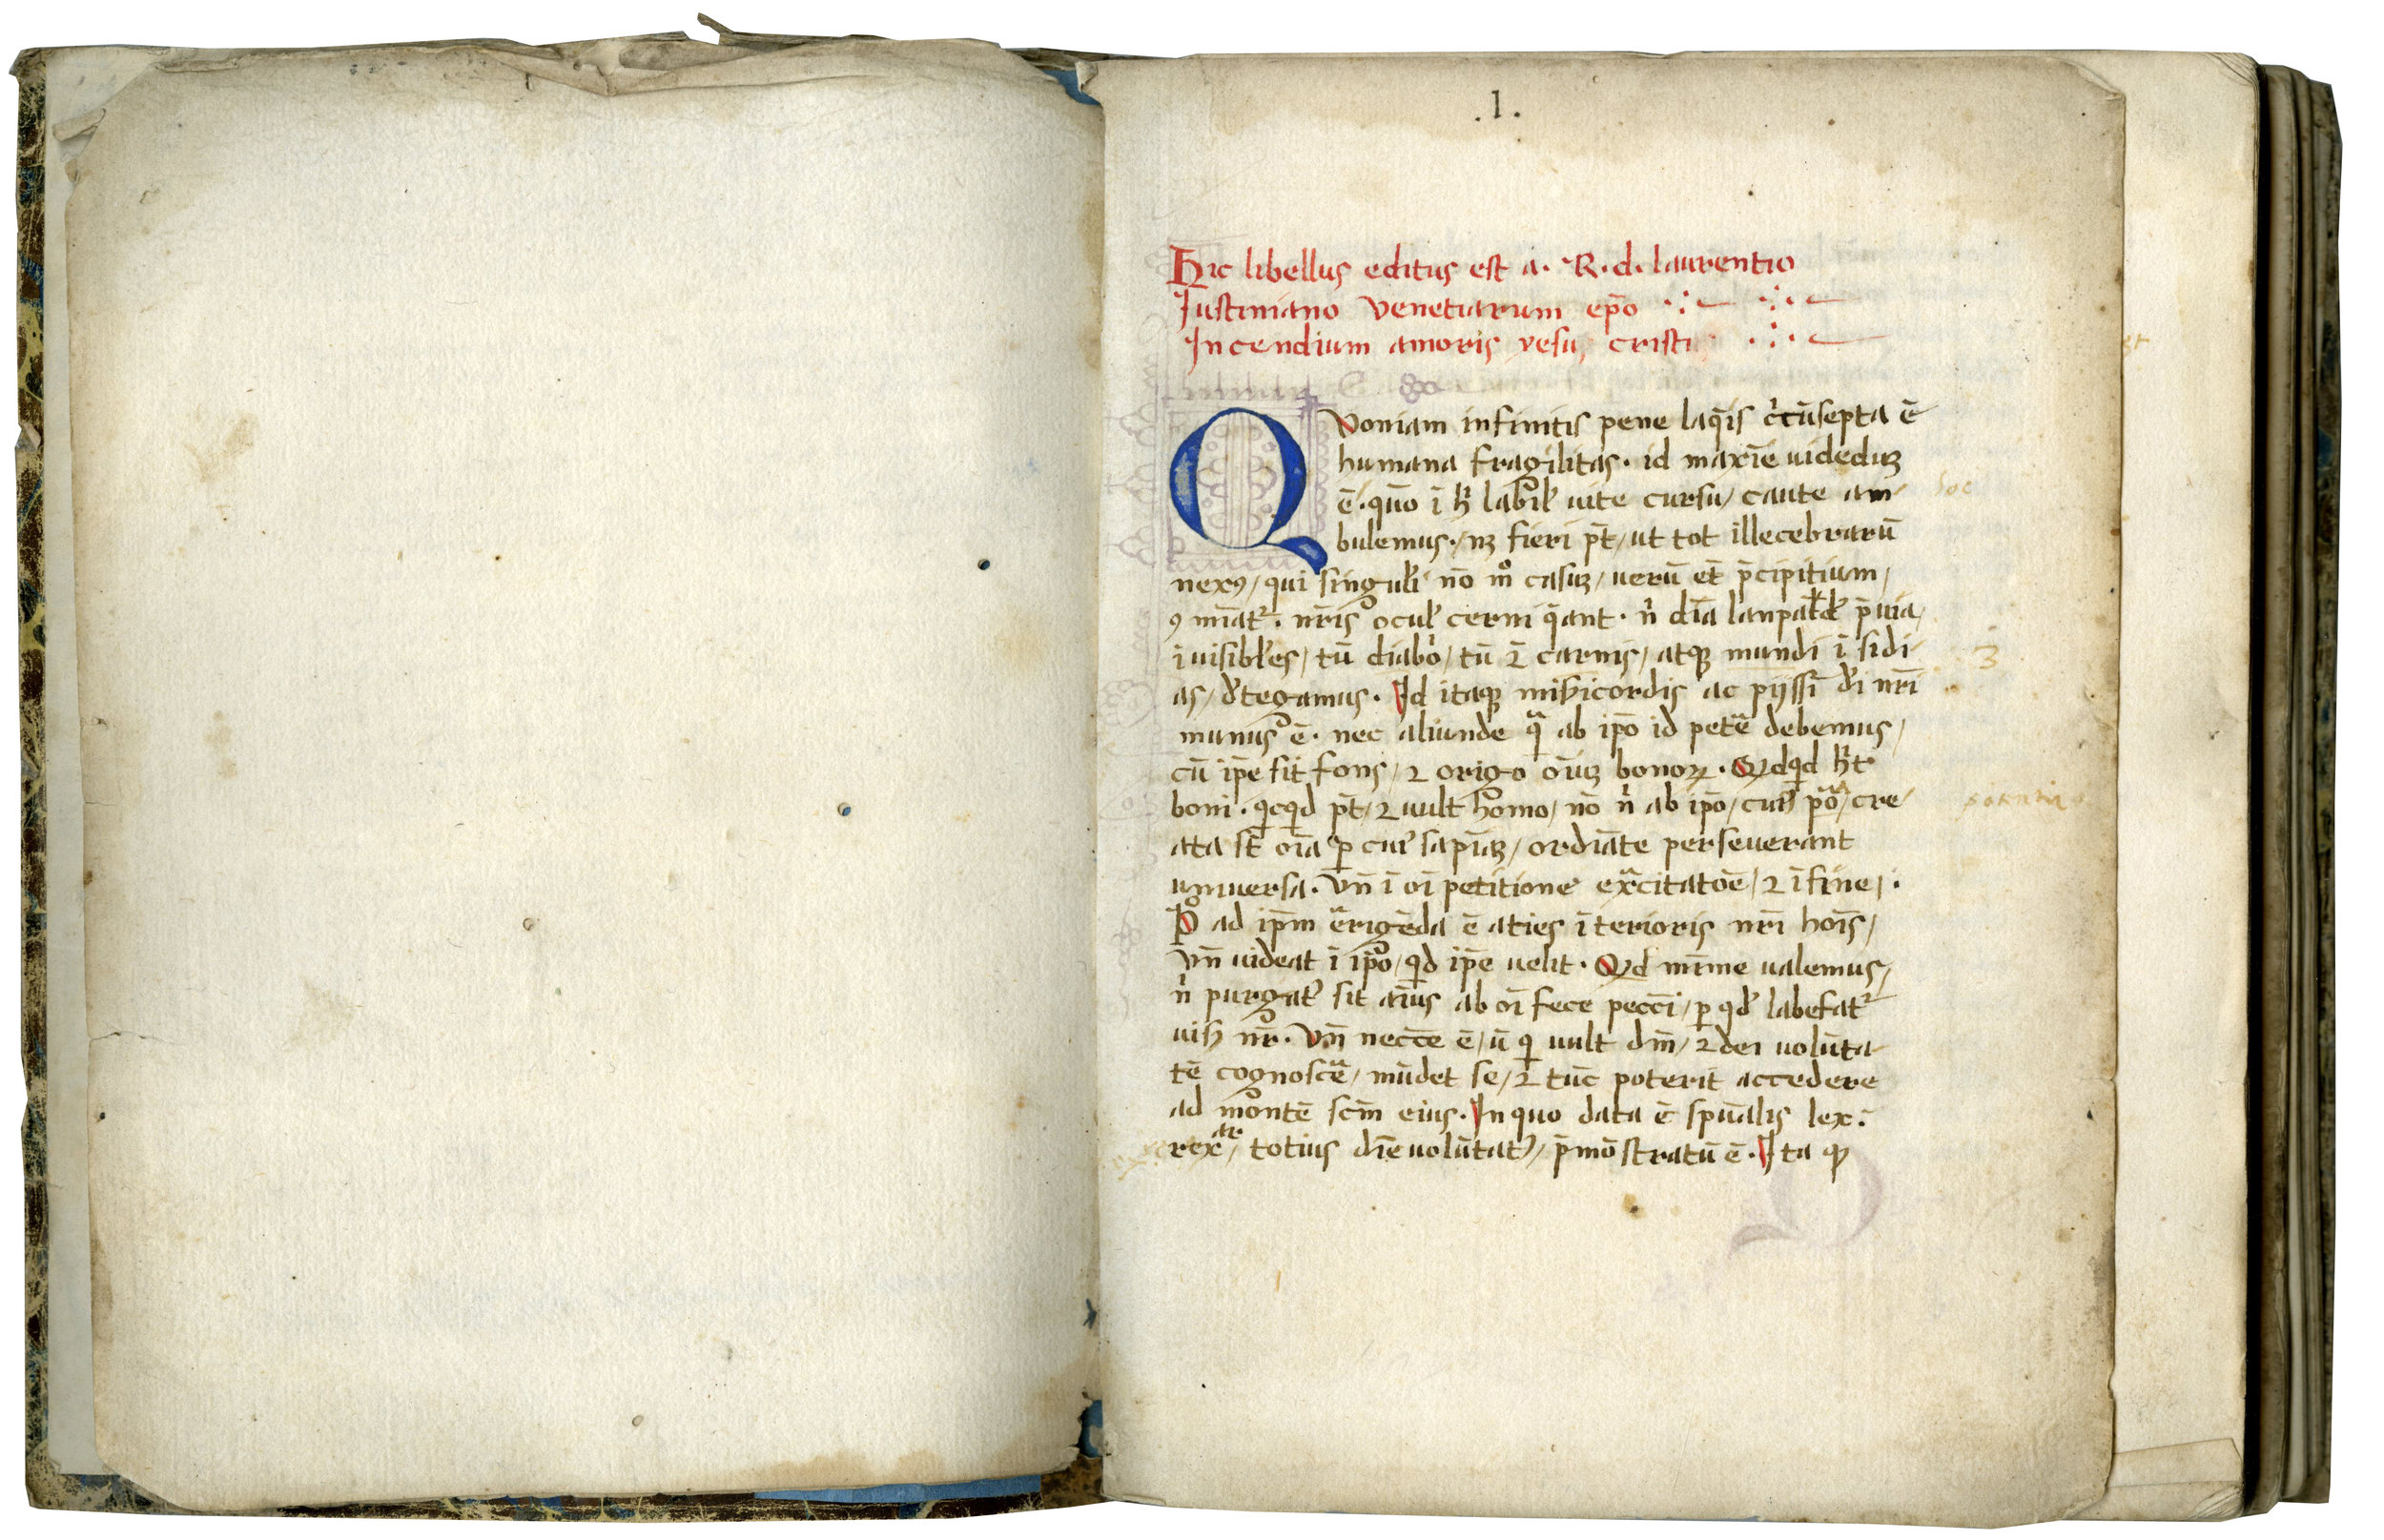 .1.
Hic libellus editus est a. R. d. laurentio
Iustiniano venetiarum ep̄o
Incendium amoris yesu cristi
Quoniam infinitis pene laq̄is c̓cūsepta ē
humana fragilitas. id maxīe uidēduz
ē. quō ī h̓ labil̓ uite cursu/ caute am
bulemus./ nz fieri p̄t/ ut tot illecebrarū
nexꝰ/ qui singuli nō mº casuz/ uerū et̄ p̄cipitium/
ꝯ mināt᷑. nr̄is ocul̓ cerni q̄ant. n̓ dīa lanpad̓ p̄uia/
īuisibl̓es/ tū diabº/ tū ⁊ carnis/ atqꝫ mundi īsidi
as/ d̓tegamus. Id itaqꝫ misicordis ac pijssī d̓i nr̄i
munus ē. nec aliunde qᷓ ab ip̄o id petē debemus/
cū ip̄e sit fons/ ⁊ origo oīuz bonoꝝ. Qd̓qd h̓t
boni. qcqd p̄t/ ⁊ uult homo/ nō n̓ ab ip̄o/ cui᷒ pōᷓ/ cre
ata st̄ oīa ꝑ cui᷒ sapīaz/ ordiāte perseuerant
uniuersa. Vn̄ ī oī petitione exᷓcitatōe/ ⁊ ī fine/.
Pº ad ip̄m ērigēda ē aties īterioris nr̄i hoīs/
vn̄ uideat ī ip̄o/ qd ip̄e uelit. Qd mīme ualemus/
n̓ purgat᷒ sit aīus ab oī fece pecc̄i/ ꝑ qd̓ labefat᷑
uis nr̄. Vn̄ necc̄e ē/ ū qi uult dm̄/ ⁊ dei uolūta
tē cognoscē/ mūdet se/ ⁊ tūc poterit accedere
ad montē scm̄ eius. In quo data ē spūalis lex.
totius dīe uolūtat᷒/ p̄mōstratū ē. Ita qꝫ